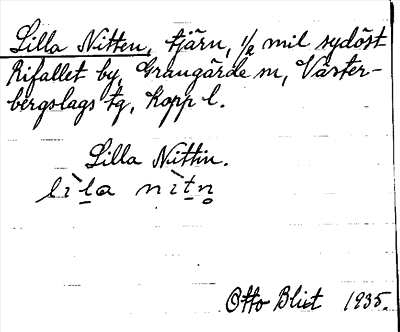 Lilla Nitten, tjärn, 1/2 mil sydöst
Rifallet by, Grangärde sn, Väster-
bergslags tg, Kopp l.
Lilla Nittin.
Otto Blixt 1935.